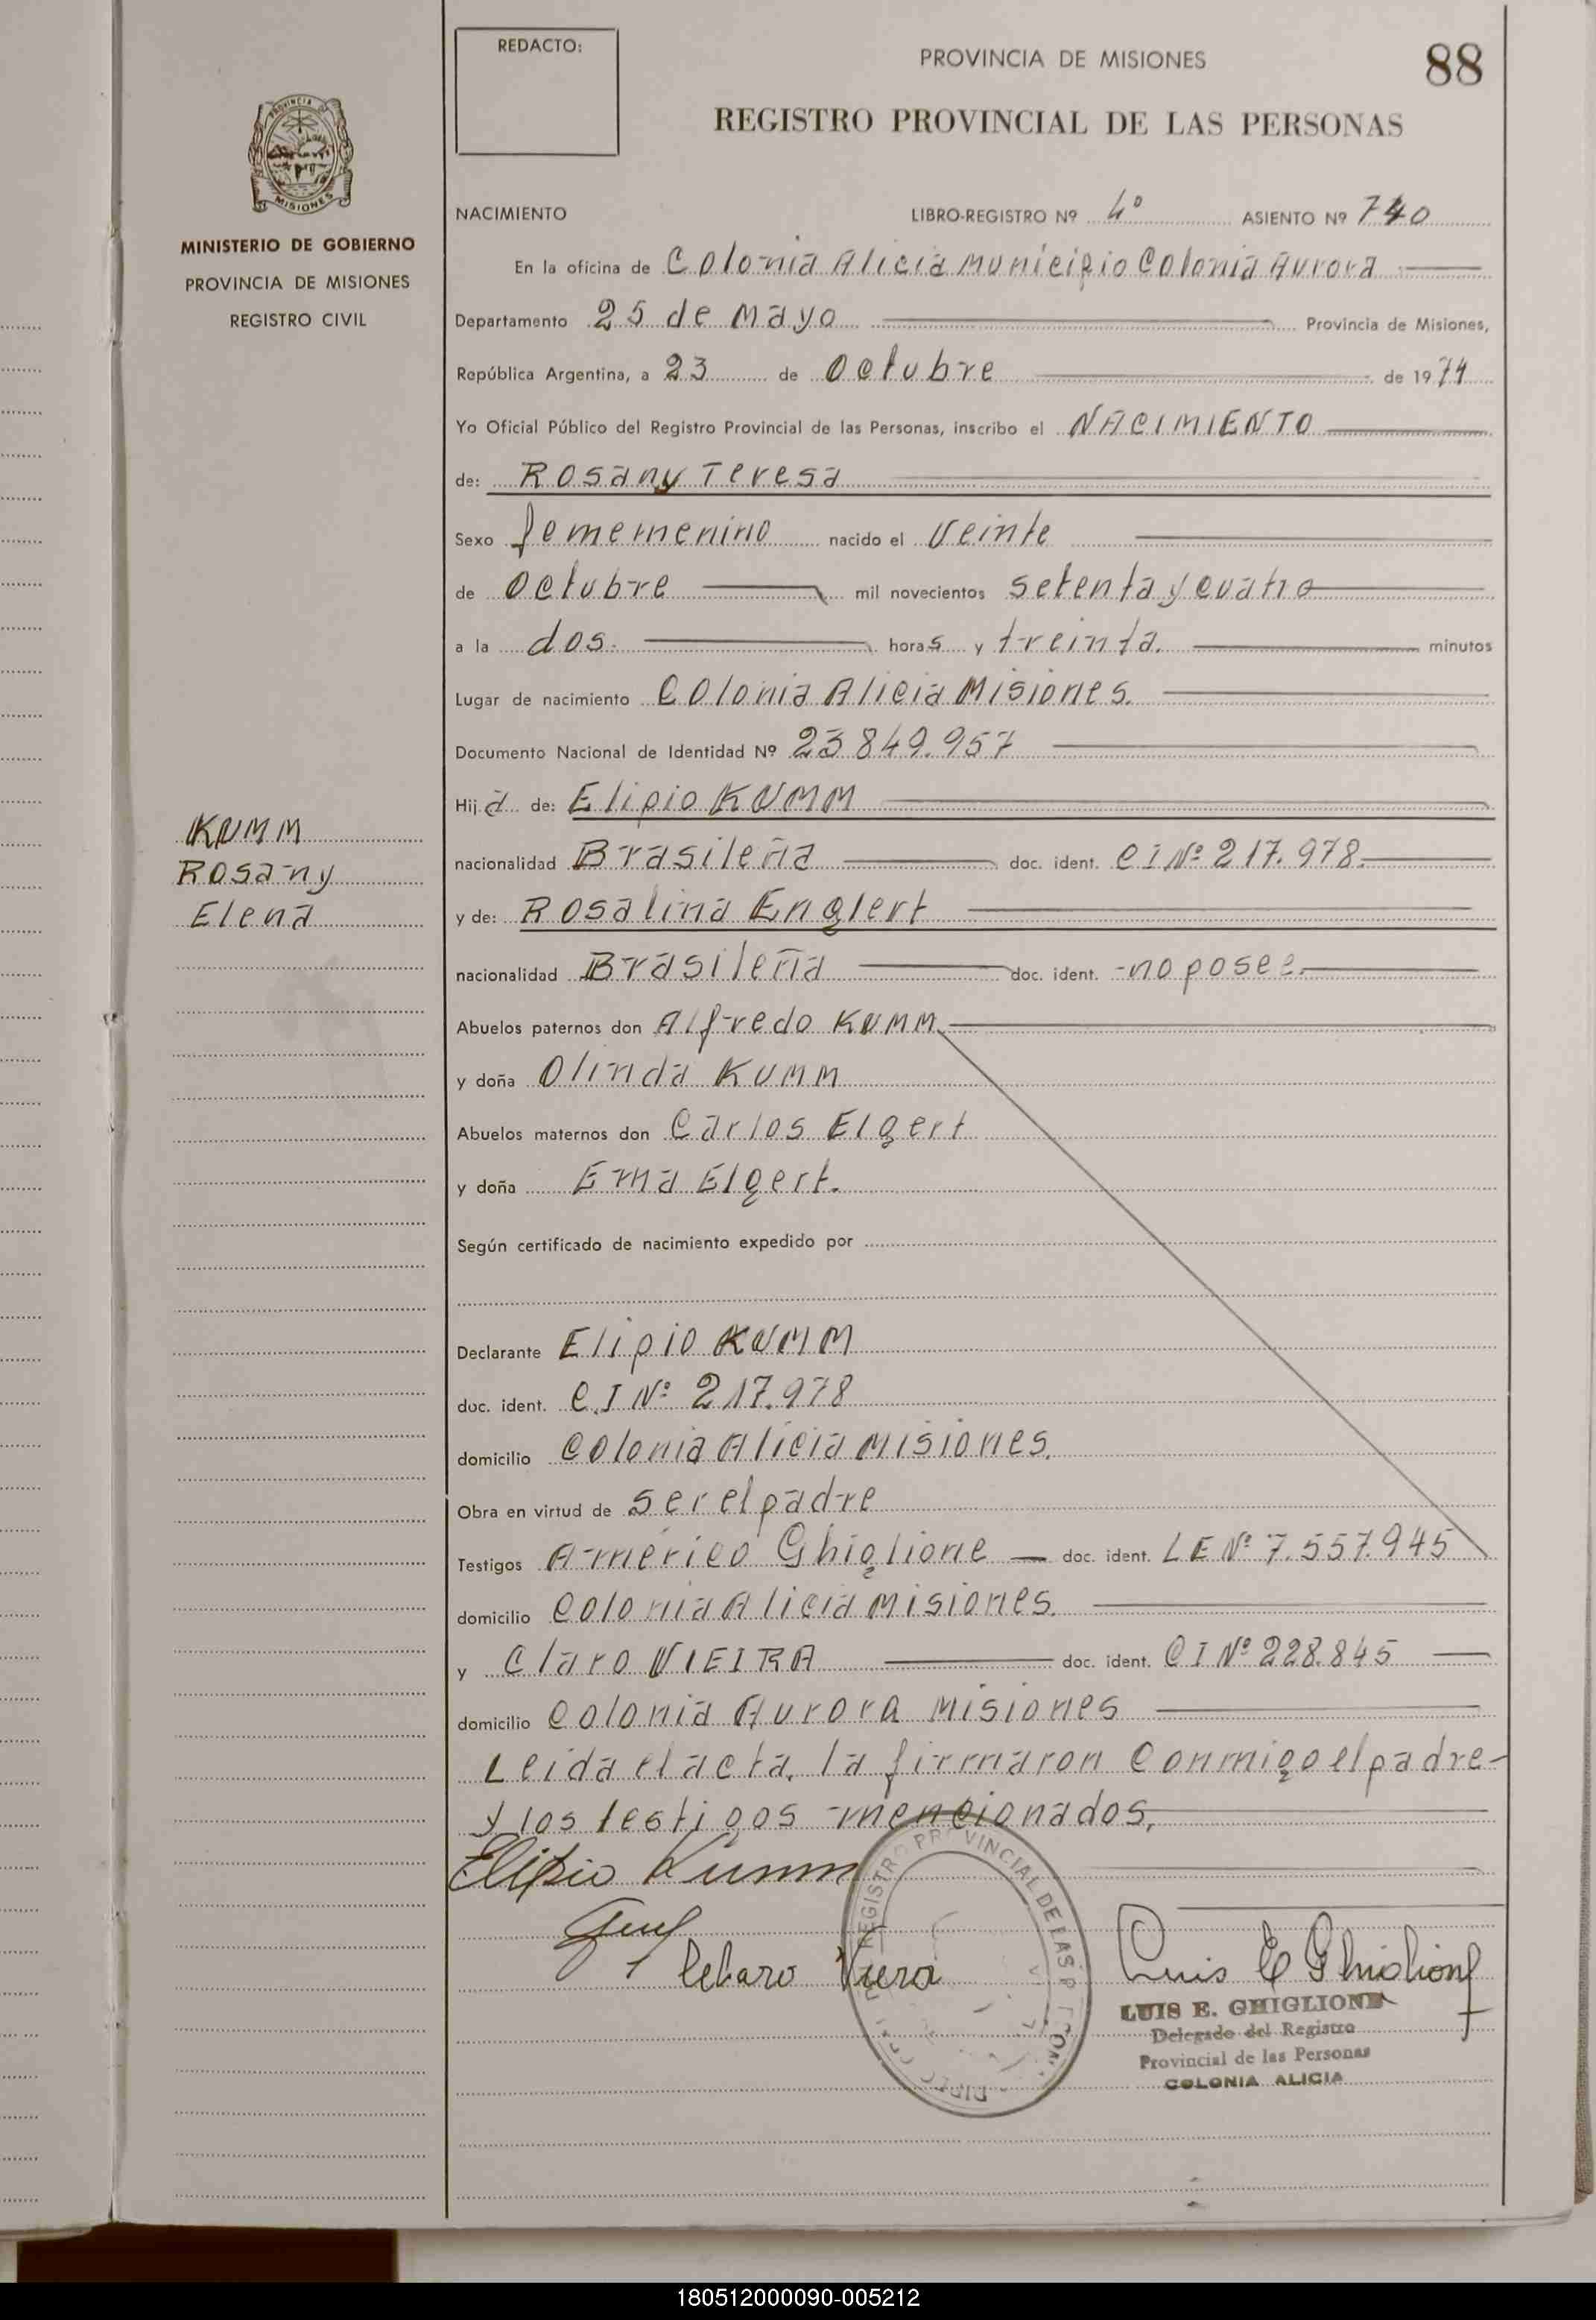 REDACTO:
PROVINCIA DE MISIONES
88
REGISTRO PROVINCIAL DE LAS PERSONAS
PROVINCIA
MISIONES
MINISTERIO DE GOBIERNO
PROVINCIA DE MISIONES
REGISTRO CIVIL
NACIMIENTO LIBRO-REGISTRO Nº 4º ASIENTO Nº 740
En la oficina de Colonia Alicia Municipio Colonia Aurora
Departamento 25 de Mayo Provincia de Misiones,
República Argentina, a 23 de Octubre de 1974
Yo Oficial Público del Registro Provincial de las Personas, inscribo el NACIMIENTO
de: Rosany Teresa
Sexo femememenino nacido el veinte
de Octubre mil novecientos setenta y cuatro
a la dos. horas y treinta. minutos
Lugar de nacimiento Colonia Alicia Misiones.
Documento Nacional de Identidad Nº 23849.957
Hija de: Elipio KUMM
KUMM
Rosany
Elena
nacionalidad Brasileña doc. ident. CI Nº 217.978.
y de: Rosalina Englert
nacionalidad Brasileña doc. ident. no posee.
Abuelos paternos don Alfredo KUMM.
y doña Olinda KUMM
Abuelos maternos don Carlos Elgert
y doña Erna Elgert.
Según certificado de nacimiento expedido por
Declarante Elipio KUMM
doc. ident. C.I Nº 217.978
domicilio Colonia Alicia Misiones.
Obra en virtud de ser el padre
Testigos Américo Ghiglione doc. ident. LE Nº 7.557.945
domicilio Colonia Alicia Misiones.
y Claro VIEIRA doc. ident. CI Nº 228.845
domicilio Colonia Aurora Misiones
Leida el acta, la firmaron conmigo el padre
y los testigos mencionados.
Elipio Kumm
Viera
Luis E Ghiglione
REGISTRO PROVINCIAL DE LAS
LUIS E. GHIGLIONE
Delegado del Registro
Provincial de las Personas
COLONIA ALICIA
180512000090-005212